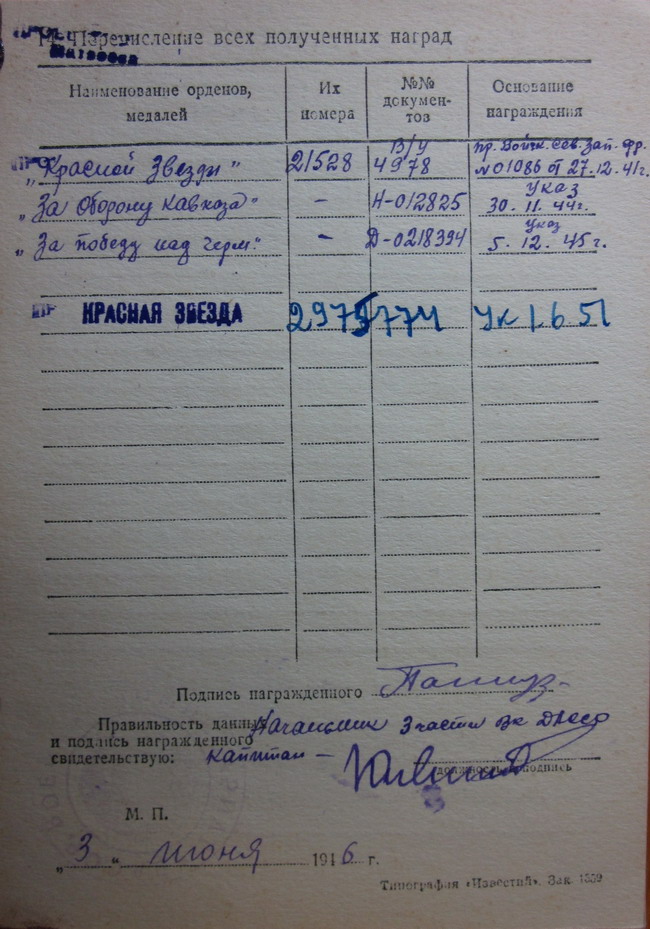 14. Перечисление всех полученных наград
Наименование орденов, медалей
Их номера
№№ докумен-тов
Основание награждения
„Красной Звезды" 21528 В/У 4978 Пр. Войск. Сев. Зап. Фр. №01086 от 27.12.41г.
„За Оборону Кавказа" – Н-012825 Указ 30.11.44г.
„За победу над герм." – Д-0218394 Указ 5.12.45г.
КРАСНАЯ ЗВЕЗДА 2975774 Ук 1.6.51
Подпись награжденного
Правильность данных
и подпись награжденного
свидетельствую:
Начальник 3 части
капитан –
должность и подпись
М. П.
„3" июня 1946 г.
Типография «Известий». Зак. 1559